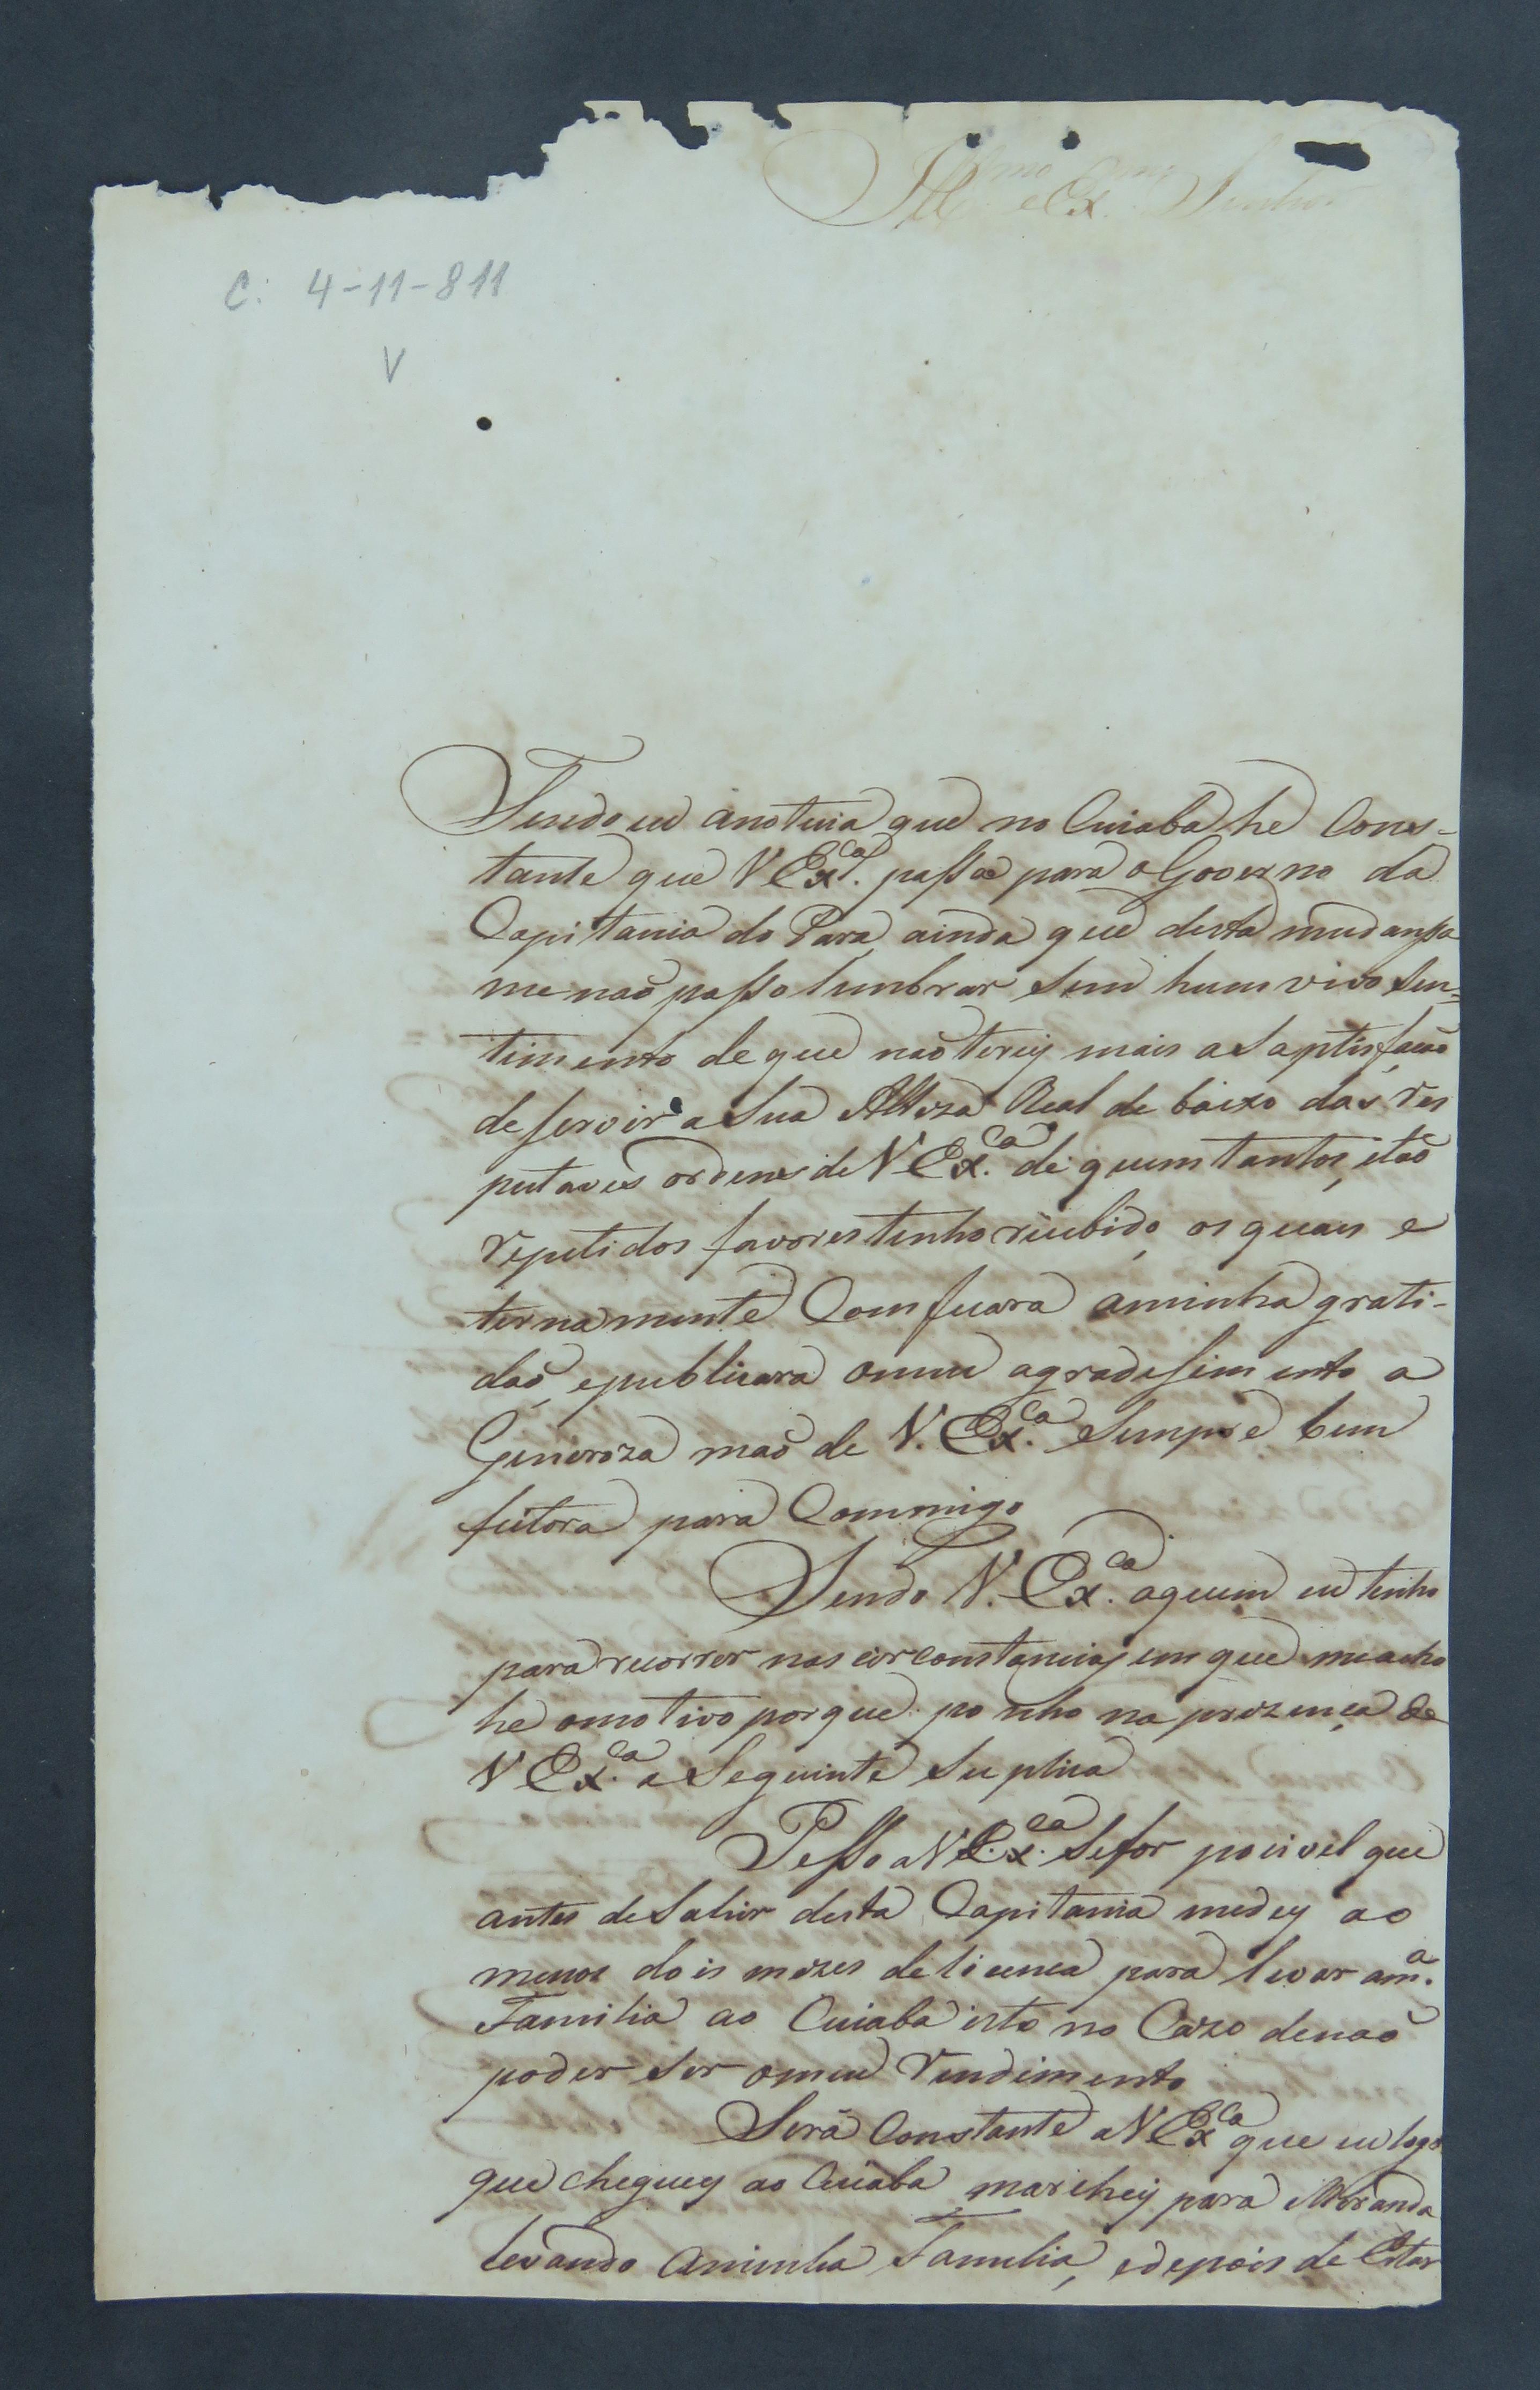 Ill.mo e Ex.mo Senhor
C: 4-11-811
V
Tendo eu anoticia que no Cuiabá he Cons-
tante que V Ex.ca passa para o Governo da
Capitania do Pará, ainda que desta mudanssa
me naõ posso lembrar sem hum vivo Sen=
timento de que naõ terey mais a Saptisfacaõ
de servir a Sua Alteza Real de baixo das res
peitaveis ordens de V Ex.ca de quem tantos, etaõ
repetidos favores tenho recebido, os quais e
ternamente Comfeçara aminha grati-
daõ, epublicara omeu agradesimento a
Generoza maõ de V. Ex.ca Sempre bem
feitora para Commigo
Sendo V. Ex.ca aquem eu tenho
para recorrer nas circonstancias em que meacho
he omotivo porque ponho na prezença de
V Ex.ca a Seguinte Suplica
Pesso a V Ex.ca Sefor pocivel que
antes deSahir desta Capitania medey ao
menos dois mezes delicenca para levar am.a
Familia ao Cuiaba isto no Cazo denaõ
poder ser omeu Rendimento
Será Constante a V Ex.ca que eu logo
que cheguey ao Cuiaba marchey para Miranda
levando aminha Familia, edepois de Estar